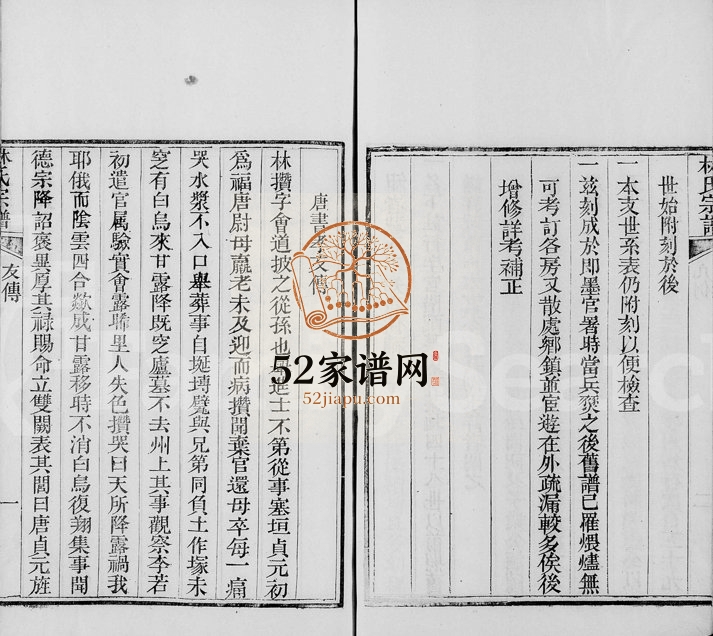 林氏宗譜
世始附刻於後
一本支世系表仍附刻以便檢查
一茲刻成於即墨官署時當兵燹之後舊譜已罹煨燼無
可考訂各房又散處鄉鎮並宦遊在外疏漏較多俟後
增修詳考補正
唐書孝友傳
林攢字會道披之從孫也舉進士不第從事塞垣貞元初
爲福唐尉母羸老未及迎而病攢聞棄官還母卒每一痛
哭水漿不入口舉葬事自埏塼甓與兄弟同負土作塚未
窆有白烏來甘露降既窆廬墓不去州上其事觀察李若
初遣官属驗實會露晞里人失色攢哭曰天所降露禍我
耶俄而陰雲四合歘成甘露移時不消白烏復翔集事聞
德宗降詔褒異厚其祿賜命立雙闕表其閭曰唐貞元旌
林氏宗譜
友傳
一
52家谱网
52jiapu.com